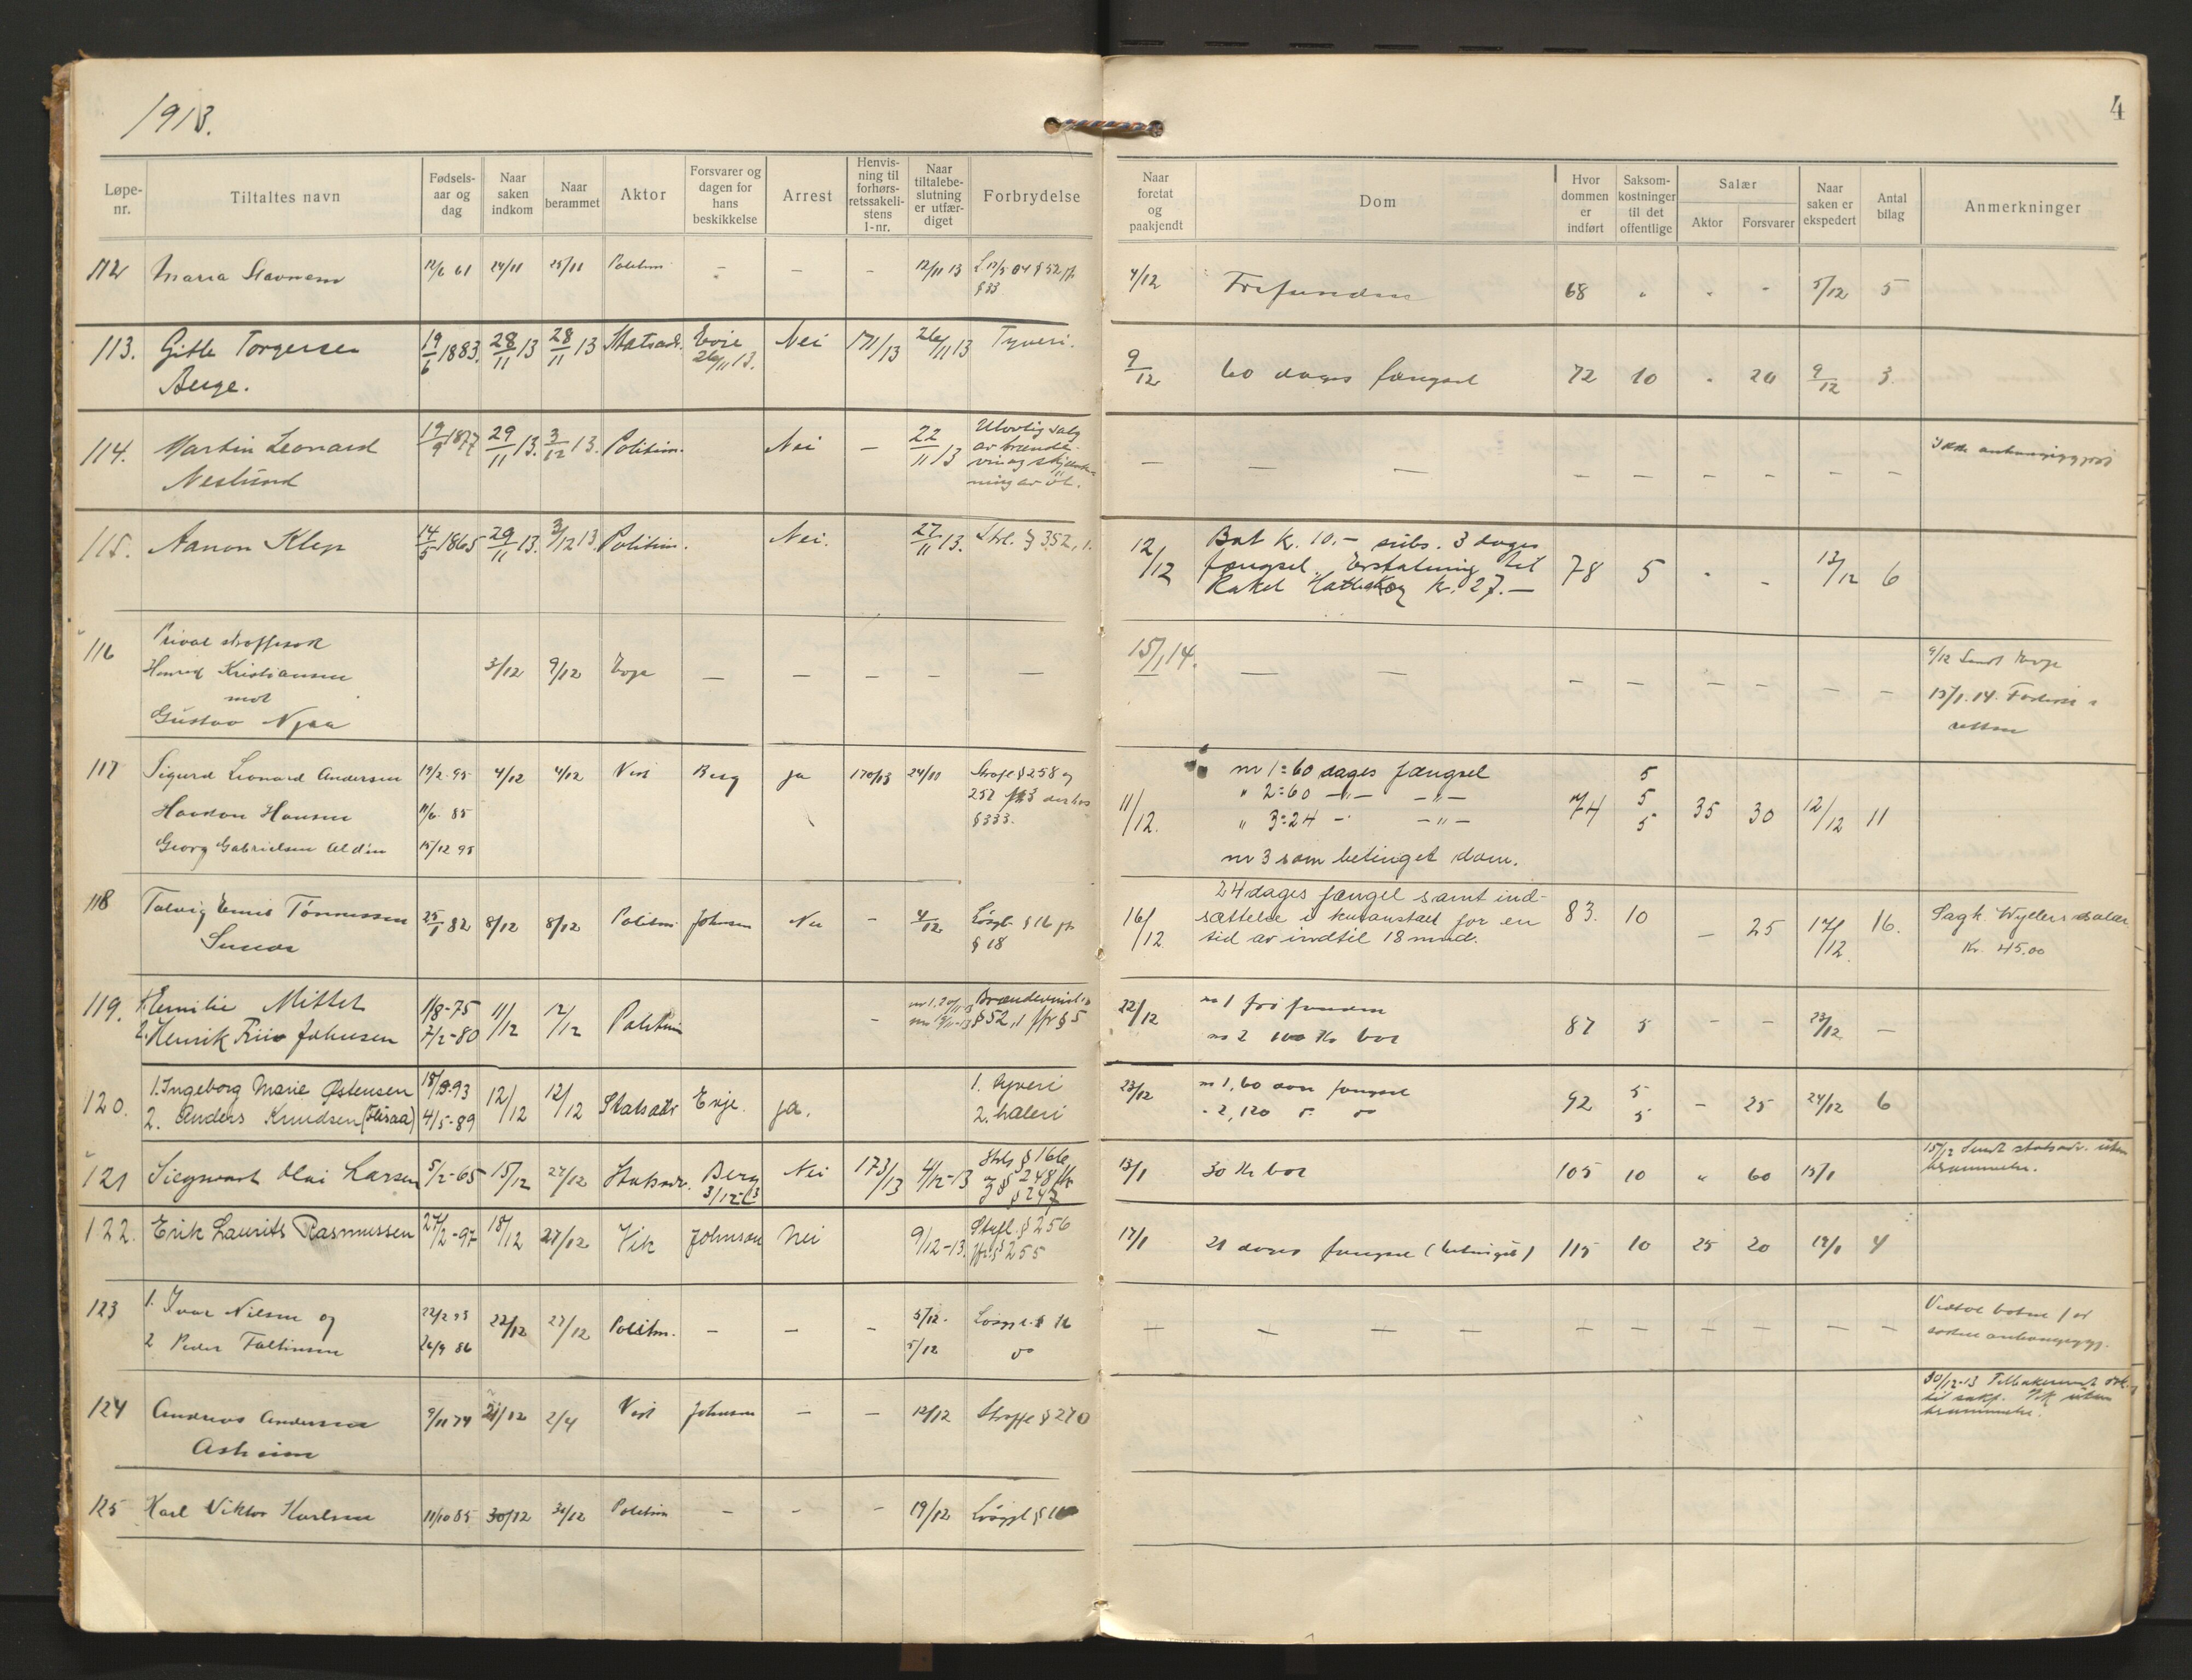 1913.
4
Løpe-nr.
Tiltaltes navn
Fødsels-aar og dag
Naar saken indkom
Naar berammet
Aktor
Forsvarer og dagen for hans beskikkelse
Arrest
Henvisning til forhørsretssakelistens l-nr.
Naar tiltalebeslutning er utfærdiget
Forbrydelse
Naar foretat og paakjendt
Dom
Hvor dommen er indført
Saksomkostninger til det offentlige
Salær
Aktor
Forsvarer
Naar saken er ekspedert
Antal bilag
Anmerkninger
112 Maria 12/6 61 24/11 25/11 Politim. – – – 12/11 13 § 52 jfr. § 33
4/12 Frifunden 68 " " " 5/12 5
113. Gitle Torgersen 19/6 1883. 28/11 13 28/11 13 Statsadv. Evje 26/11 13. Nei 171/13 26/11 13 Tyveri.
Berge.
9/12 60 dages fængsel 72 10 " 20 9/12 3
114. Martin Leonard 19/9 1877 29/11 13. 3/12 13. Politim. Nei – 22/11 13 Ulovlig salg
Neslund av brænde-
vin og skjænk-
ning av øl.
– – – – – – – – – – Ikke anhængiggjort
115. Aanon Klep 14/5 1865 29/11 13. 3/12 13 Politim. Nei. 27/11 13. Strl. § 352, 1.
12/12 Bot kr. 10.– subs. 3 dages
fængsel. Erstatning til
Rakel Hatteskog kr. 27.–
78 5 " – 13/12 6
116 Privat straffesak
Henrik Kristiansen 3/12 9/12 Evje – – – – –
mot
Gustav Njaa
15/1 14. – – – – – – – – – 9/12 Sendt Evje
15/1. 14. Forlikt i
retten
117 Sigurd Leonard Andersen 19/2 95 4/12 4/12 Berg ja 170/13 24/11 Straffel. § 258 og
Haakon Hansen 11/6 85 257 jfr. derhos
Georg Gabrielsen Aldin 15/12 95 § 333.
11/12. nr 1: 60 dages fængsel 5
" 2: 60 –"– –"– 5
" 3: 24 –"– –"– 5
nr 3 som betinget dom.
74 35 30 12/12 11
118 Emil Tønnessen 25/1 82 8/12 8/12 Politim. Johnsen Nei – 4/12 Løsgl. § 16 jfr.
Sunde § 18
16/12. 24 dages fængel samt ind-
sættelse i kuranstalt for en
tid av indtil 18 mnd.
83. 10 – 25 17/12. 16. Sagk. Wyllers salær
Kr. 45.00
119. 1. Emilie Mittet 1/8-75 11/12 12/12 Politim – Brændevinsl.
2. Henrik Johnsen 7/2-80 § 52, 1 jfr § 5
22/12 nr 1 frifunden
nr 2 100 Kr bot
87 5 – – 23/12 –
120. 1. Ingeborg Marie Østensen 18/9-93 12/12 12/12 Statsadv Evje. ja. 1. tyveri
2. Anders Knudsen 4/5-89 2. hæleri
23/12 nr 1, 60 dages fængsel 5
" 2, 120 do do 5
92 – 25 24/12 6
121 Siegwart Olai Larsen 5/2-65 15/12 27/12 Statsadv. Berg 3/12-13 Nei 173/13 4/12-13 Strl. § 166
og § 248 jfr.
§ 247
13/1 30 Kr bot 105 10 " 60 15/1 15/12 Sendt statsadv. uten
berammelse.
122. Erik Laurits Rasmussen 27/2-97 18/12 27/12 Vik Johnson Nei 9/12-13. Strfl. § 256
jfr. § 255
17/1 21 dages fængsel (betinget) 115 10 25 20 19/1 4
123 1. Ivar Nilsen og 22/2 93 22/12 27/12 Politm. – – – 5/12. Løsgjl. § 16
2 Peder Faltinsen 26/9 86 5/12 do
– – – – – – – – – – Vedtok boten før
saken anhængiggj.
124 Andreas Andersen 9/11 74 21/12 2/4 Johnsen – – 12/12 Straffel § 270
Askeim
30/12-13 Tilbakesendt
til sakf. Vik uten
berammelse.
125 Karl Viktor Karlsen 11/10 85 30/12 30/12 Politim – – – 19/12 Løsgjl § 16